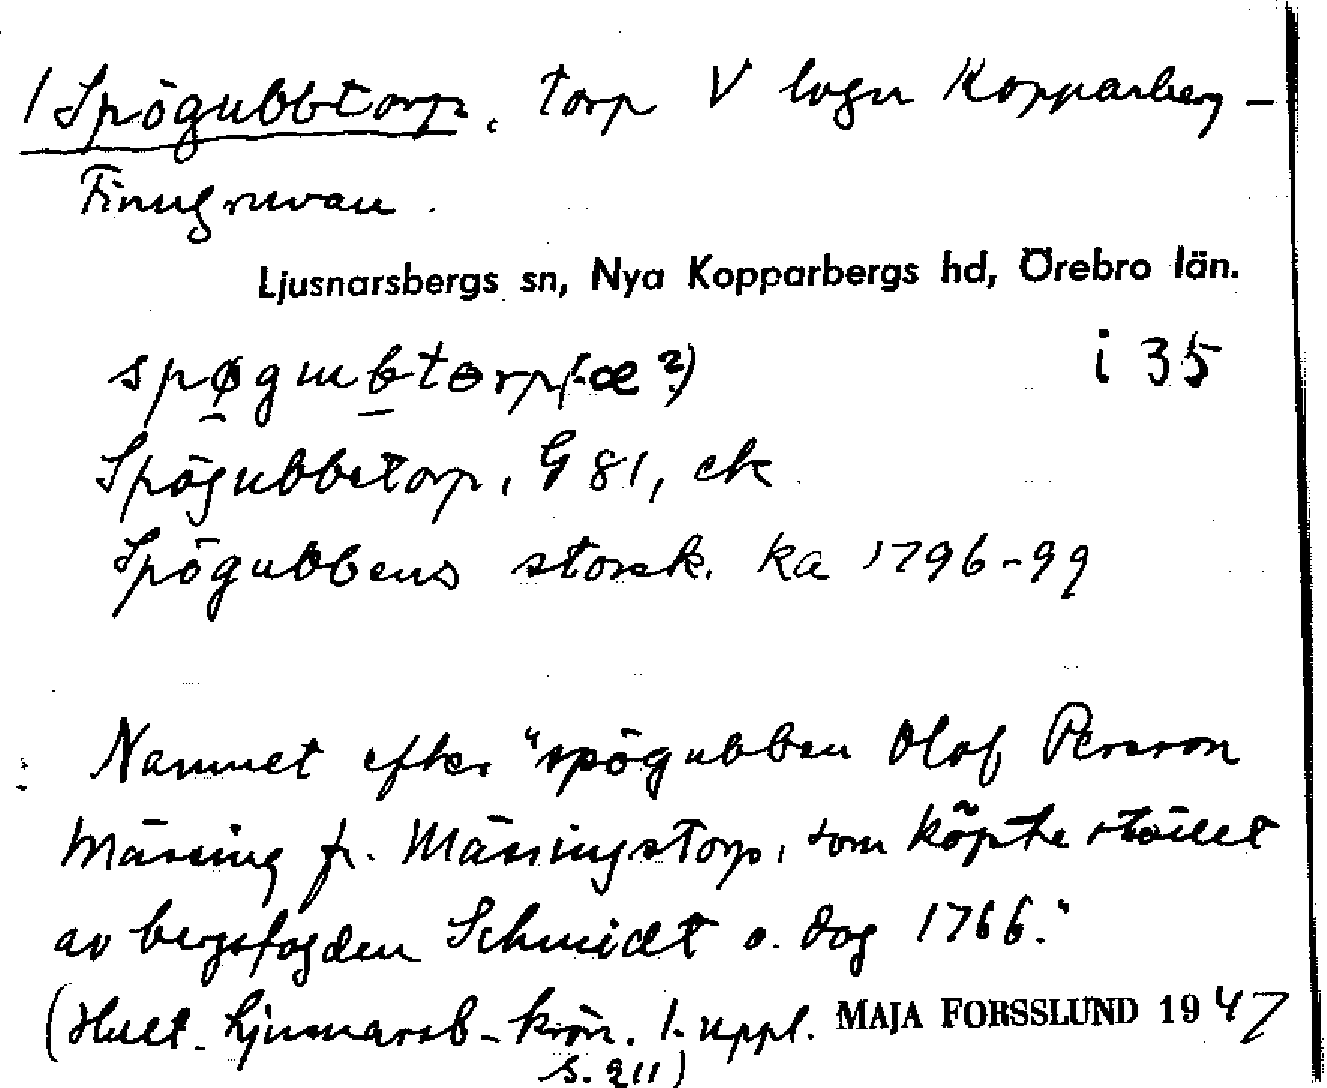 1 Spögubbtorp, torp V lvgn Kopparberg –
Finngruvan.
Ljusnarsbergs sn, Nya Kopparbergs hd, Örebro län.
spøgubtorp (-œ?) i 35
Spögubbetorp, G 81, ek
Spögubbens storsk. ka 1796-99
Namnet efter "spögubben Olof Persson
Mässing fr. Mässingstorp, som köpte stället
av bergsfogden Schmidt o. dog 1766."
(Hult. Ljusnarsb-krön. 1. uppl. MAJA FORSSLUND 1947
s. 211)